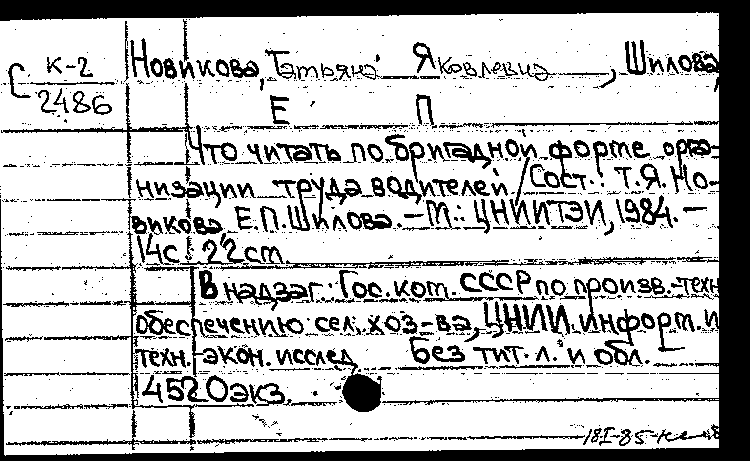 К-2
2486
Новикова, Татьяна Яковлевна, Шилова,
Е П
Что читать по бригадной форме орга-
низации труда водителей / Сост.: Т.Я. Но-
викова, Е.П. Шилова. — М.: ЦНИИТЭИ, 1984. —
14с.: 22ст
В надзаг: Гос. ком. СССР по произв.-техн
обеспечению сел. хоз-ва, ЦНИИ информ. и
техн.-экон. исслед Без тит. л. и обл. —
4520экз.
18I-85